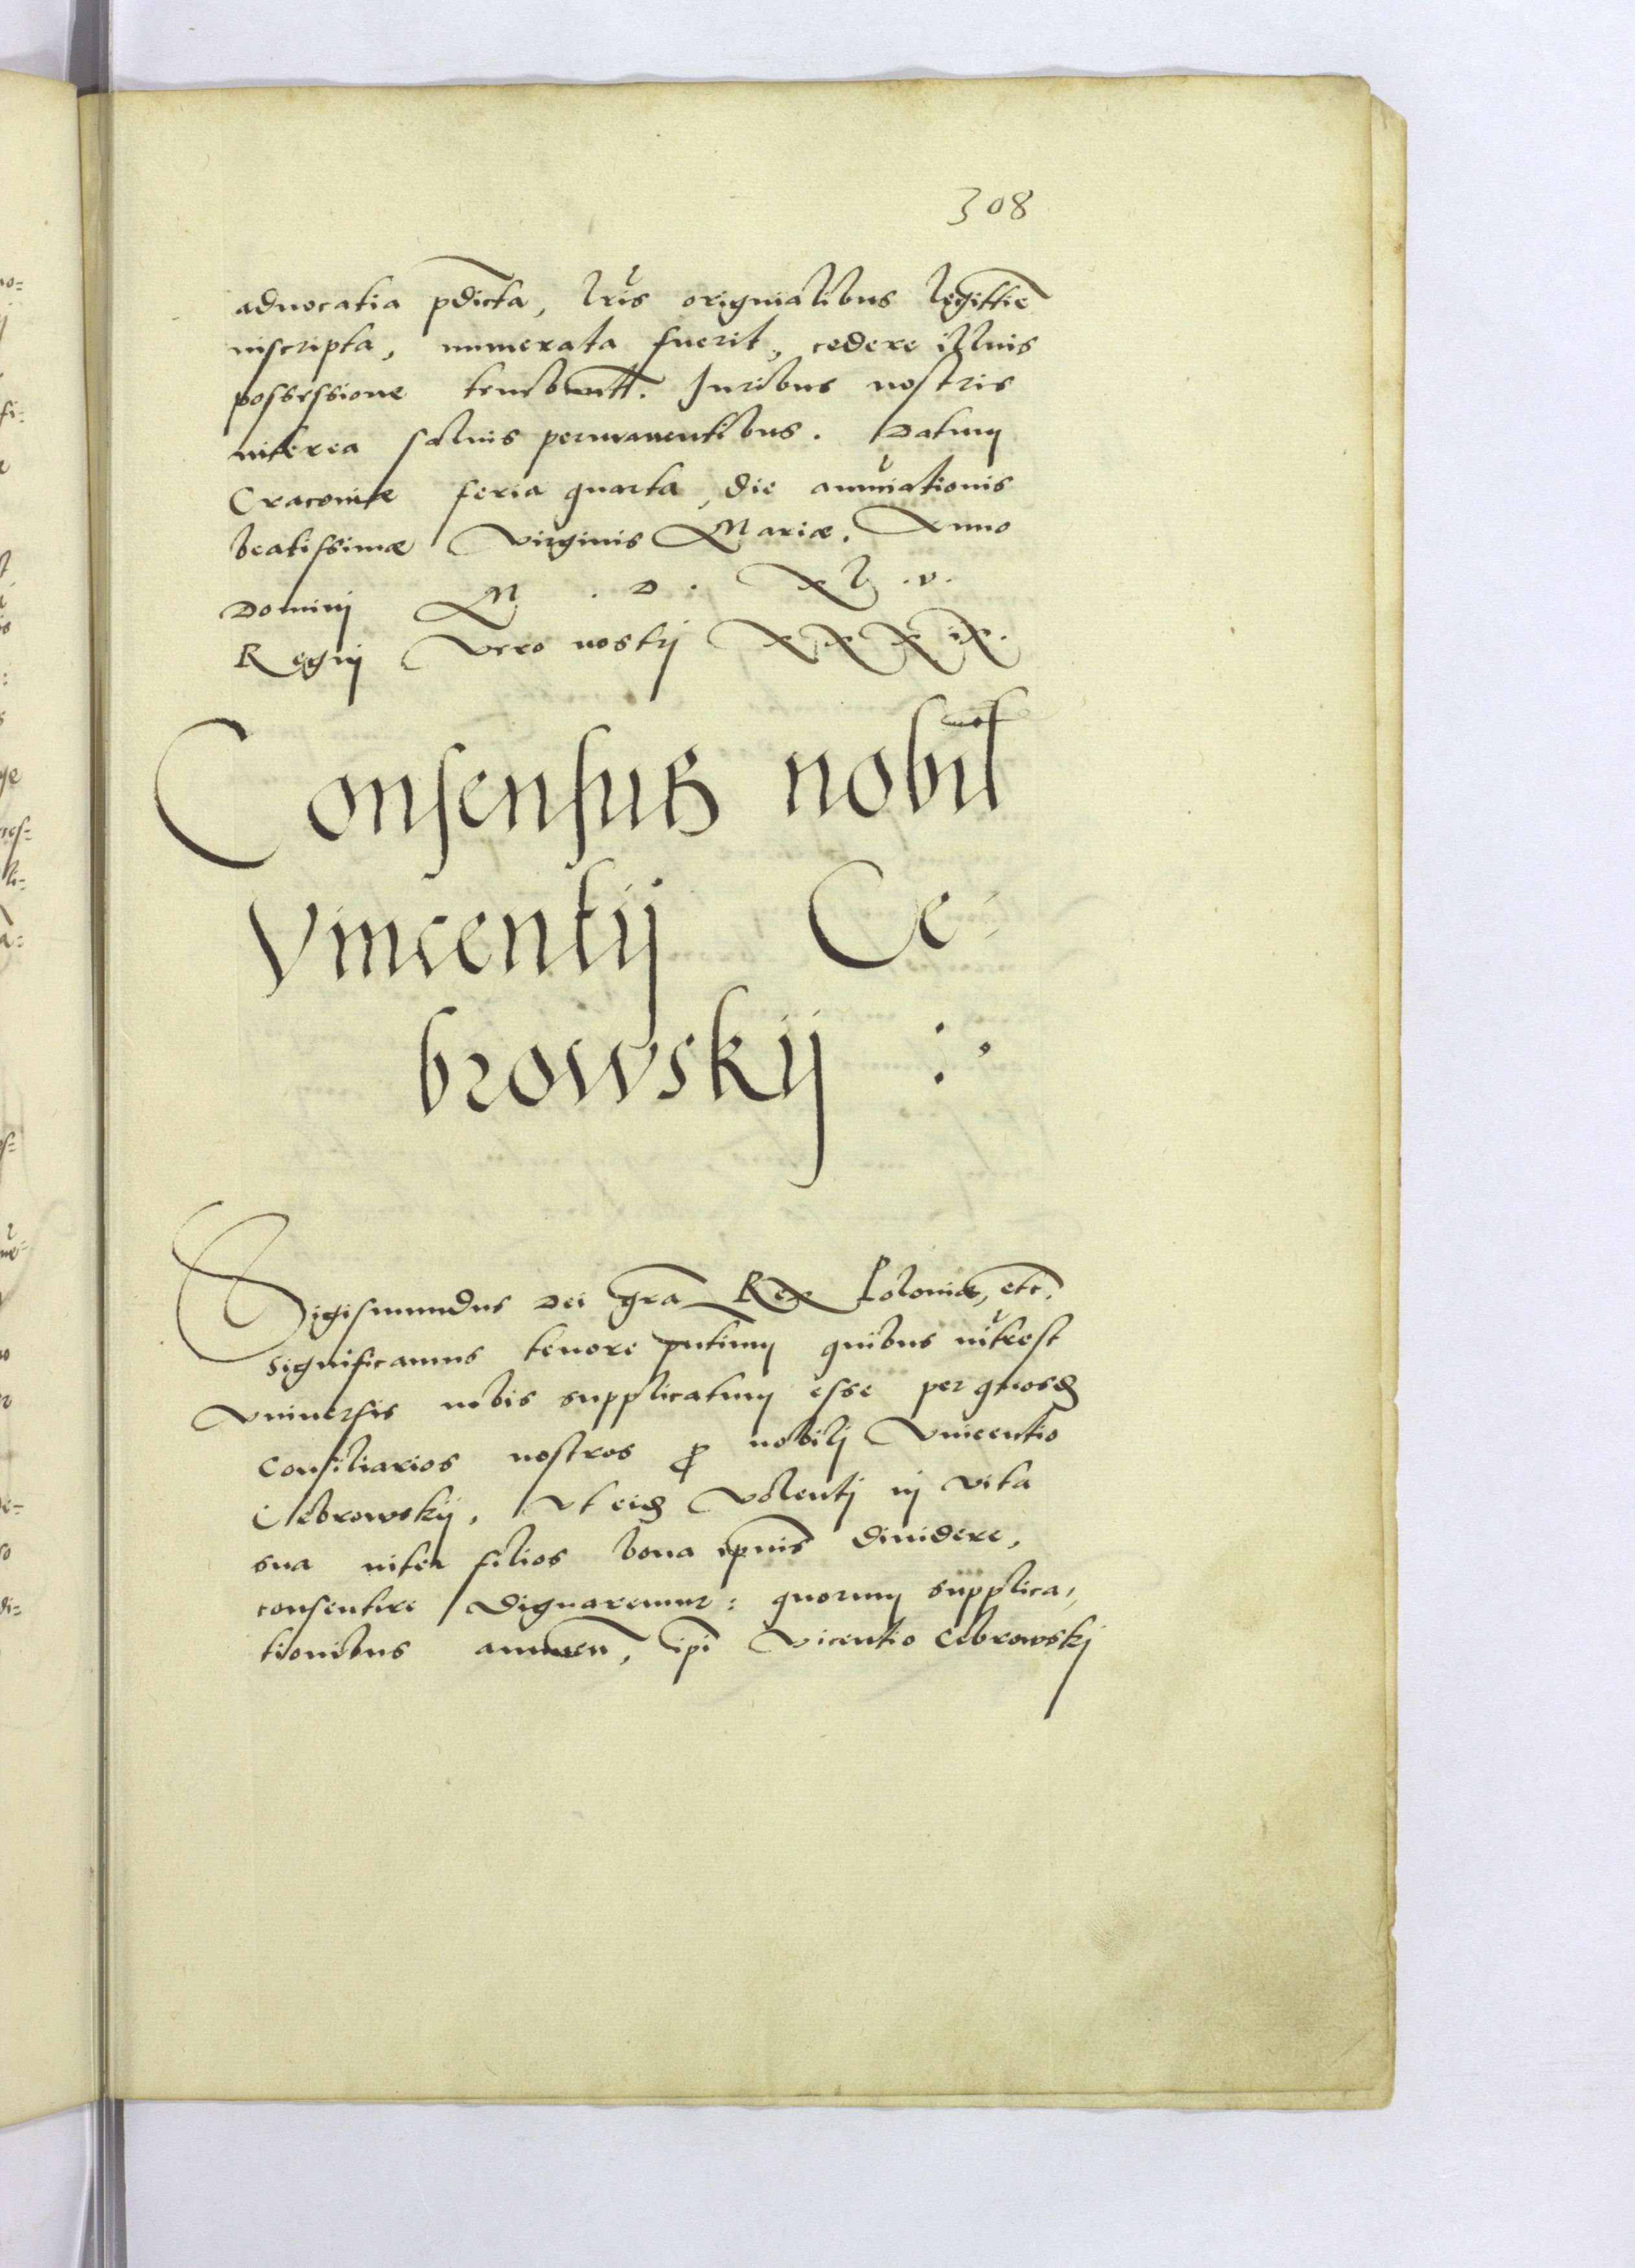 308
aduocatia p̄dicta, lr̃is originalibus legittie͂
inscripta, numerata fuerit, cedere illius
possessione tenebunt̃. Iuribus nostris
interea saluis permanentibus. Datum
Cracoviæ feria quarta die annũciationis
beatissimæ Virginis Mariæ. Anno
Dominj M . D . XL .v.
Regnj vero nostrj XXXIX.
Consensus nobil̃
Vincentij Ce-
browskij :·
Sigismundus Dei gr̃a Rex Poloniæ, etc.
Significamus tenore pñtium quibus inter̃est
vniuersis nobis supplicatum esse per quosdã
Consiliarios nostros ꝓ nobilj Vincentio
Cebrowskij, vt eidẽ volentj in vita
sua inter filios bona ip̃ius diuidere,
consentire dignaremur: quorum supplica-
tionibus annuen̄, ip̃i Vicentio Cebrowskj